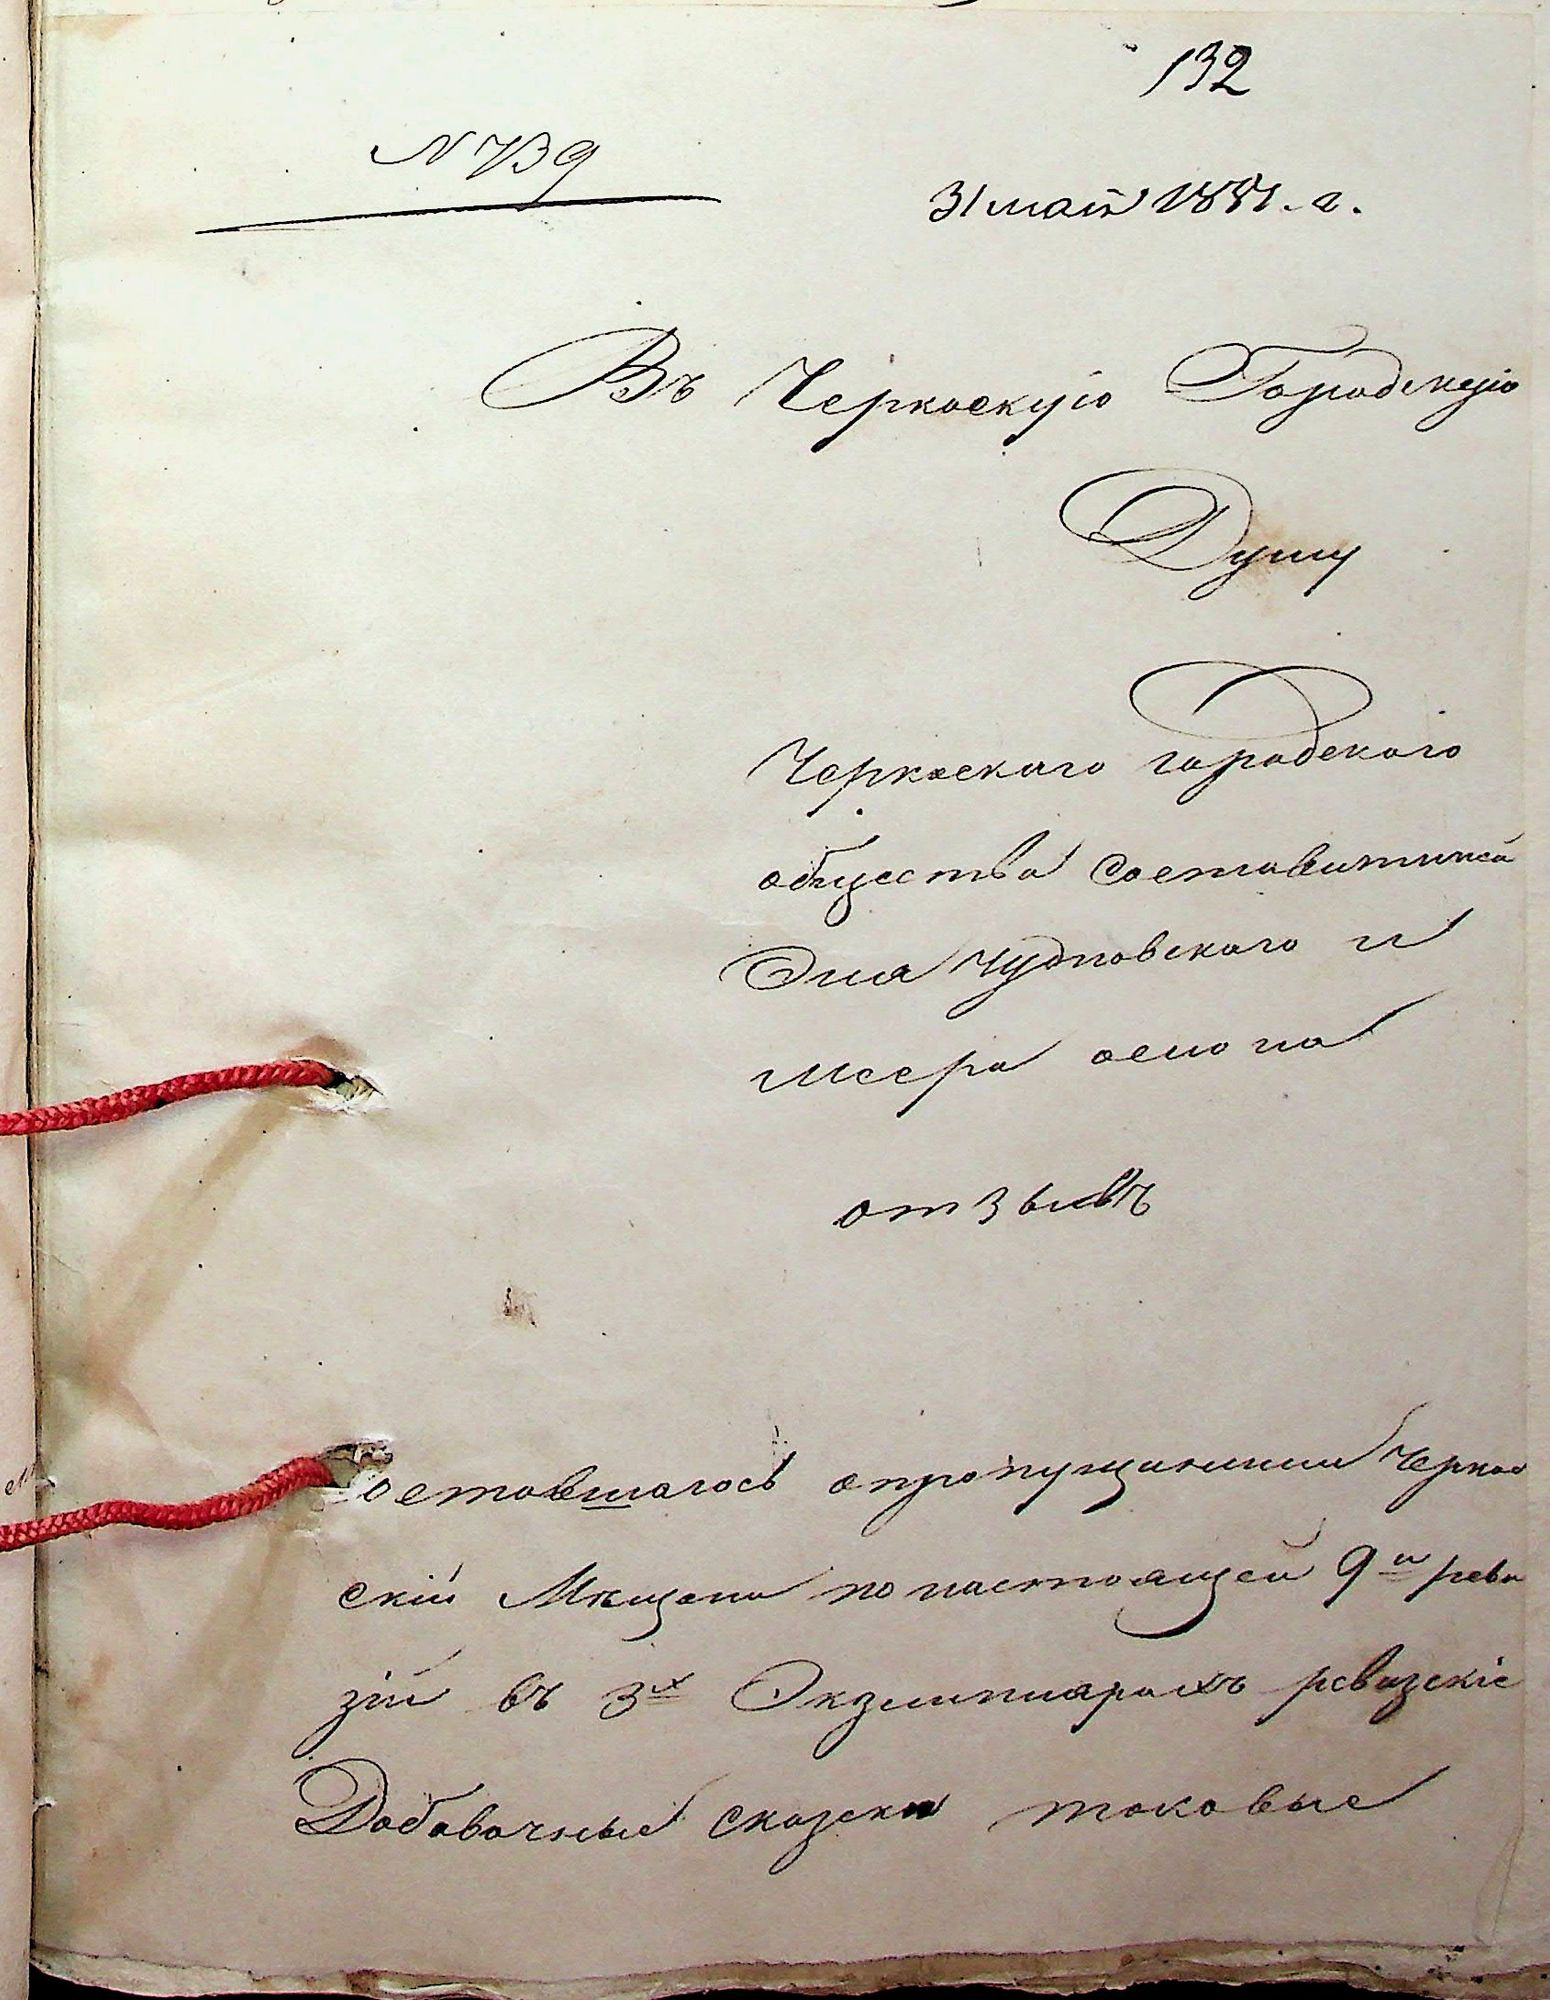 132
N 739
31 май 1851. г.
Въ Черкаскую Городскую
Думу
Черкаскаго городскаго
общества
Эля Чудновскаго и
меера
отзывъ
оставшагось опропущиными Черка
скій Мѣщани по настоящей 9й реви
зій въ 3х Экземпиярахъ ревизскіе
Добавочные сказски таковые